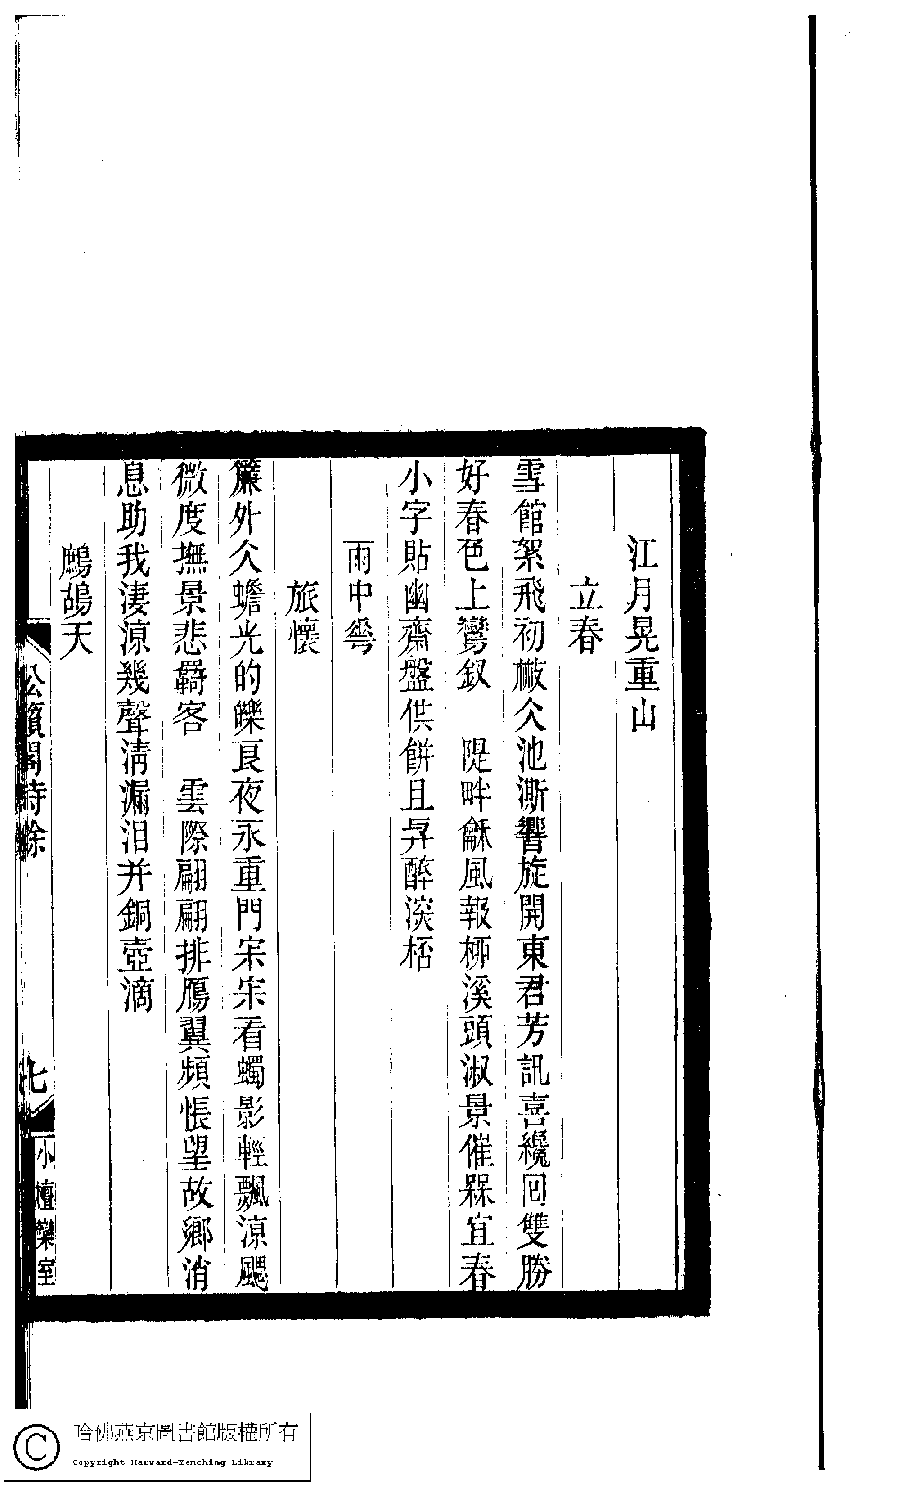 江月晃重山
立春
雪館絮飛初㪚仌池澌響旋開東君芳訊喜纔回雙勝
好春色上鸞釵　隄畔龢風報桺溪頭淑景催槑宜春
小字貼幽齋盤供餠且昇醉深桮
雨中蕚
旅懷
簾外仌蟾光的皪良夜永重門宋宋看蠋影輕飄涼颸
微度撫景悲羇客　雲際翩翩排鴈翼頻悵望故鄉消
息助我淒涼幾聲淸漏泪并銅壺滴
鷓鴣天
松籟閣詩餘
七
小檀欒室
哈佛燕京圖書館版權所有
Copyright Harvard-Yenching Library